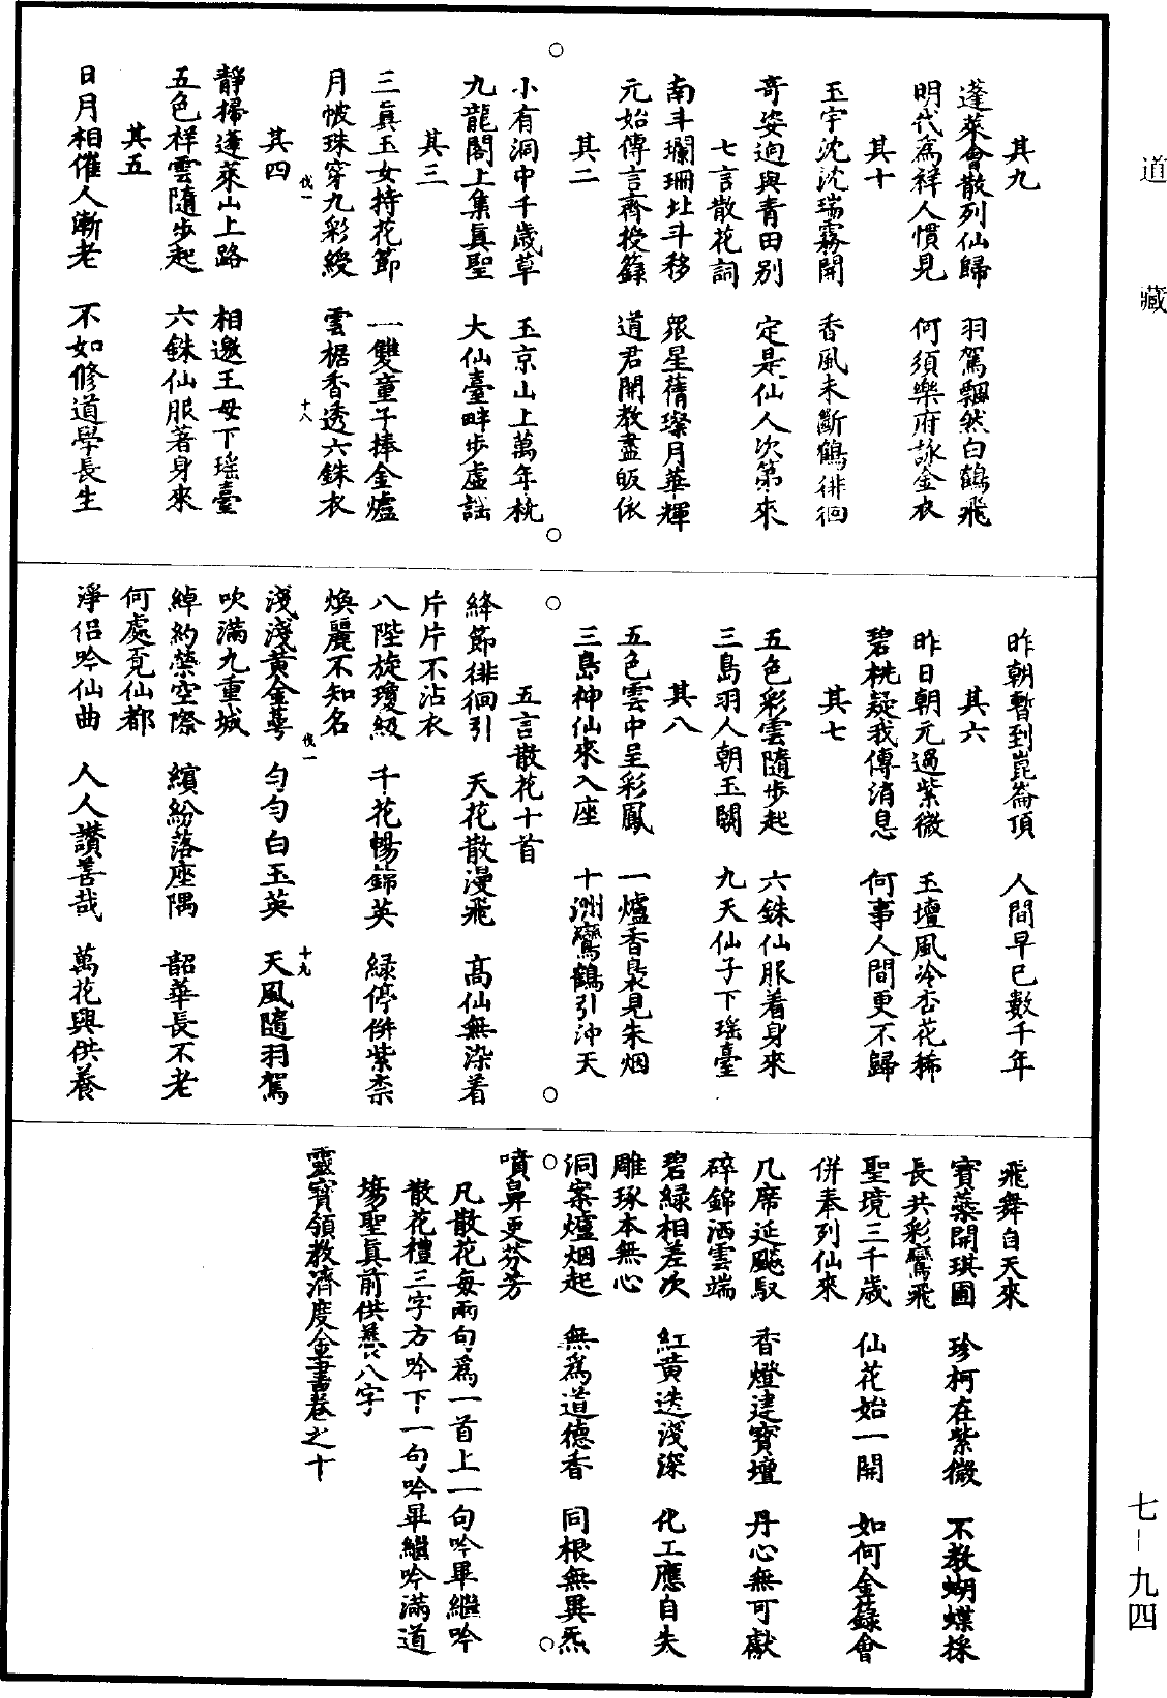 道藏
其九
蓬萊會散列仙歸　羽駕飄然白鶴飛
明代為祥人慣見　何須樂府詠金衣
其十
玉宇沈沈瑞霧開　香風未斷鶴徘徊
奇姿逈與青田別　定是仙人次第來
七言散花詞
南斗瓓珊北斗移　眾星蒨璨月華輝
元始傳言齊投籙　道君開教盡皈依
其二
小有洞中千歲草　玉京山上萬年桃
九龍閣上集真聖　大仙臺畔步虛謠
其三
三真玉女持花節　一雙童子捧金爐
月帔珠穿九彩綬　雲裾香透六銖衣
伐一　十八
其四
靜掃蓬萊山上路　相邀王母下瑤臺
五色祥雲隨步起　六銖仙服著身來
其五
日月相催人漸老　不如修道學長生
昨朝暫到崑崙頂　人間早已數千年
其六
昨日朝元過紫微　玉壇風冷杏花稀
碧桃疑我傳消息　何事人間更不歸
其七
五色彩雲隨步起　六銖仙服着身來
三島羽人朝玉闕　九天仙子下瑤臺
其八
五色雲中呈彩鳳　一爐香裊見朱烟
三島神仙來入座　十洲鸞鶴引沖天
五言散花十首
絳節徘徊引　天花散漫飛　高仙無染着
片片不沾衣
八陛旋瓊級　千花暢錦英　緑停併紫柰
煥麗不知名
伐一　十九
淺淺黃金萼　勻勻白玉英　天風隨羽駕
吹滿九重城
綽約縈空際　繽紛落座隅　韶華長不老
何處覓仙都
淨侶吟仙曲　人人讚善哉　萬花興供養
飛舞自天來
寶蘂開琪圃　珍柯在紫微　不教蝴蝶採
長共彩鸞飛
聖境三千歲　仙花始一開　如何金籙會
併奉列仙來
几席延飈馭　香燈建寶壇　丹心無可獻
碎錦洒雲端
碧緑相差次　紅黃迭淺深　化工應自失
雕琢本無心
洞案爐烟起　無為道德香　同根無異炁
噴鼻更芬芳
凡散花每兩句為一首上一句吟畢繼吟
散花禮三字方吟下一句吟畢繼吟滿道
場聖真前供養八字
靈寶領教濟度金書卷之十
七—九四